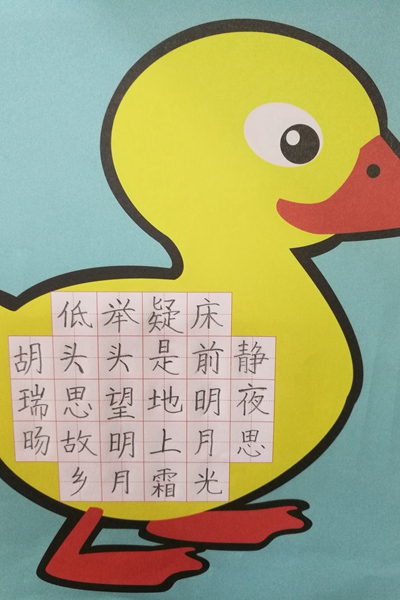 静夜思
床前明月光
疑是地上霜
举头望明月
低头思故乡
胡瑞旸